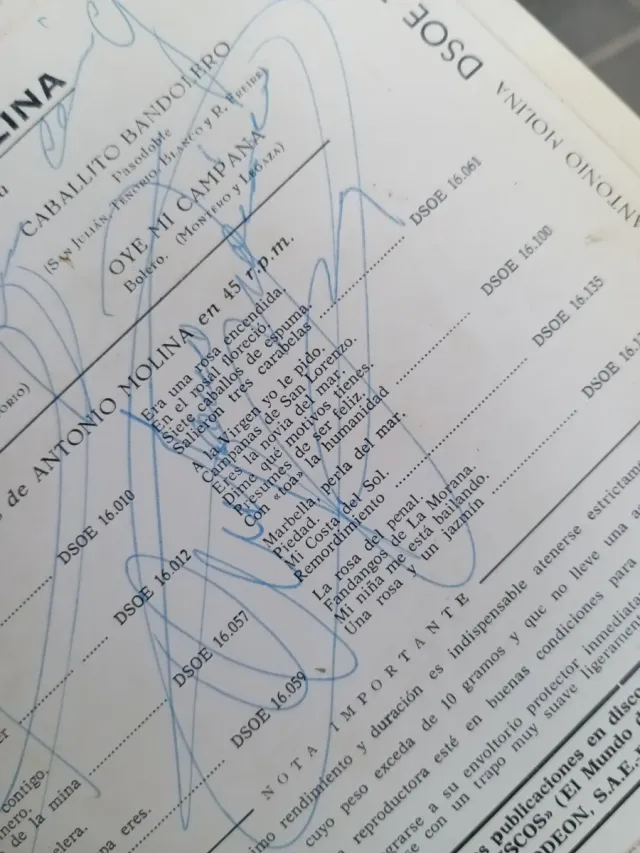 LINA
CABALLITO BANDOLERO
Pasodoble
(San Julián, Tenorio, Blanco y R. Freire)
OYE MI CAMPANA
Bolero. (Montero y Legaza)
DSOE
ANTONIO MOLINA
ORIO)
s de ANTONIO MOLINA en 45 r.p.m.
DSOE 16.010
DSOE 16.012
DSOE 16.057
DSOE 16.059
contigo.
nero.
de la mina
elera.
na eres.
Era una rosa encendida.
En el rosal floreció.
Siete caballos de espuma.
Salieron tres carabelas
DSOE 16.061
A la Virgen yo le pido.
Campanas de San Lorenzo.
Eres la novia del mar.
Dime qué motivos tienes.
Presumes de ser feliz.
Con «toa» la humanidad
DSOE 16.100
Marbella, perla del mar.
Piedad.
Mi Costa del Sol
Remordimiento
DSOE 16.135
La rosa del penal.
Fandangos de La Morana.
Mi niña me está bailando.
Una rosa y un jazmín
DSOE 16.1
NOTA IMPORTANTE
imo rendimiento y duración es indispensable atenerse estrictame
cuyo peso exceda de 10 gramos y que no lleve una a
reproductora esté en buenas condiciones para
grarse a su envoltorio protector inmediata
se con un trapo muy suave ligerament
s publicaciones en disco
SCOS» (El Mundo
ODEON, S.A.E.